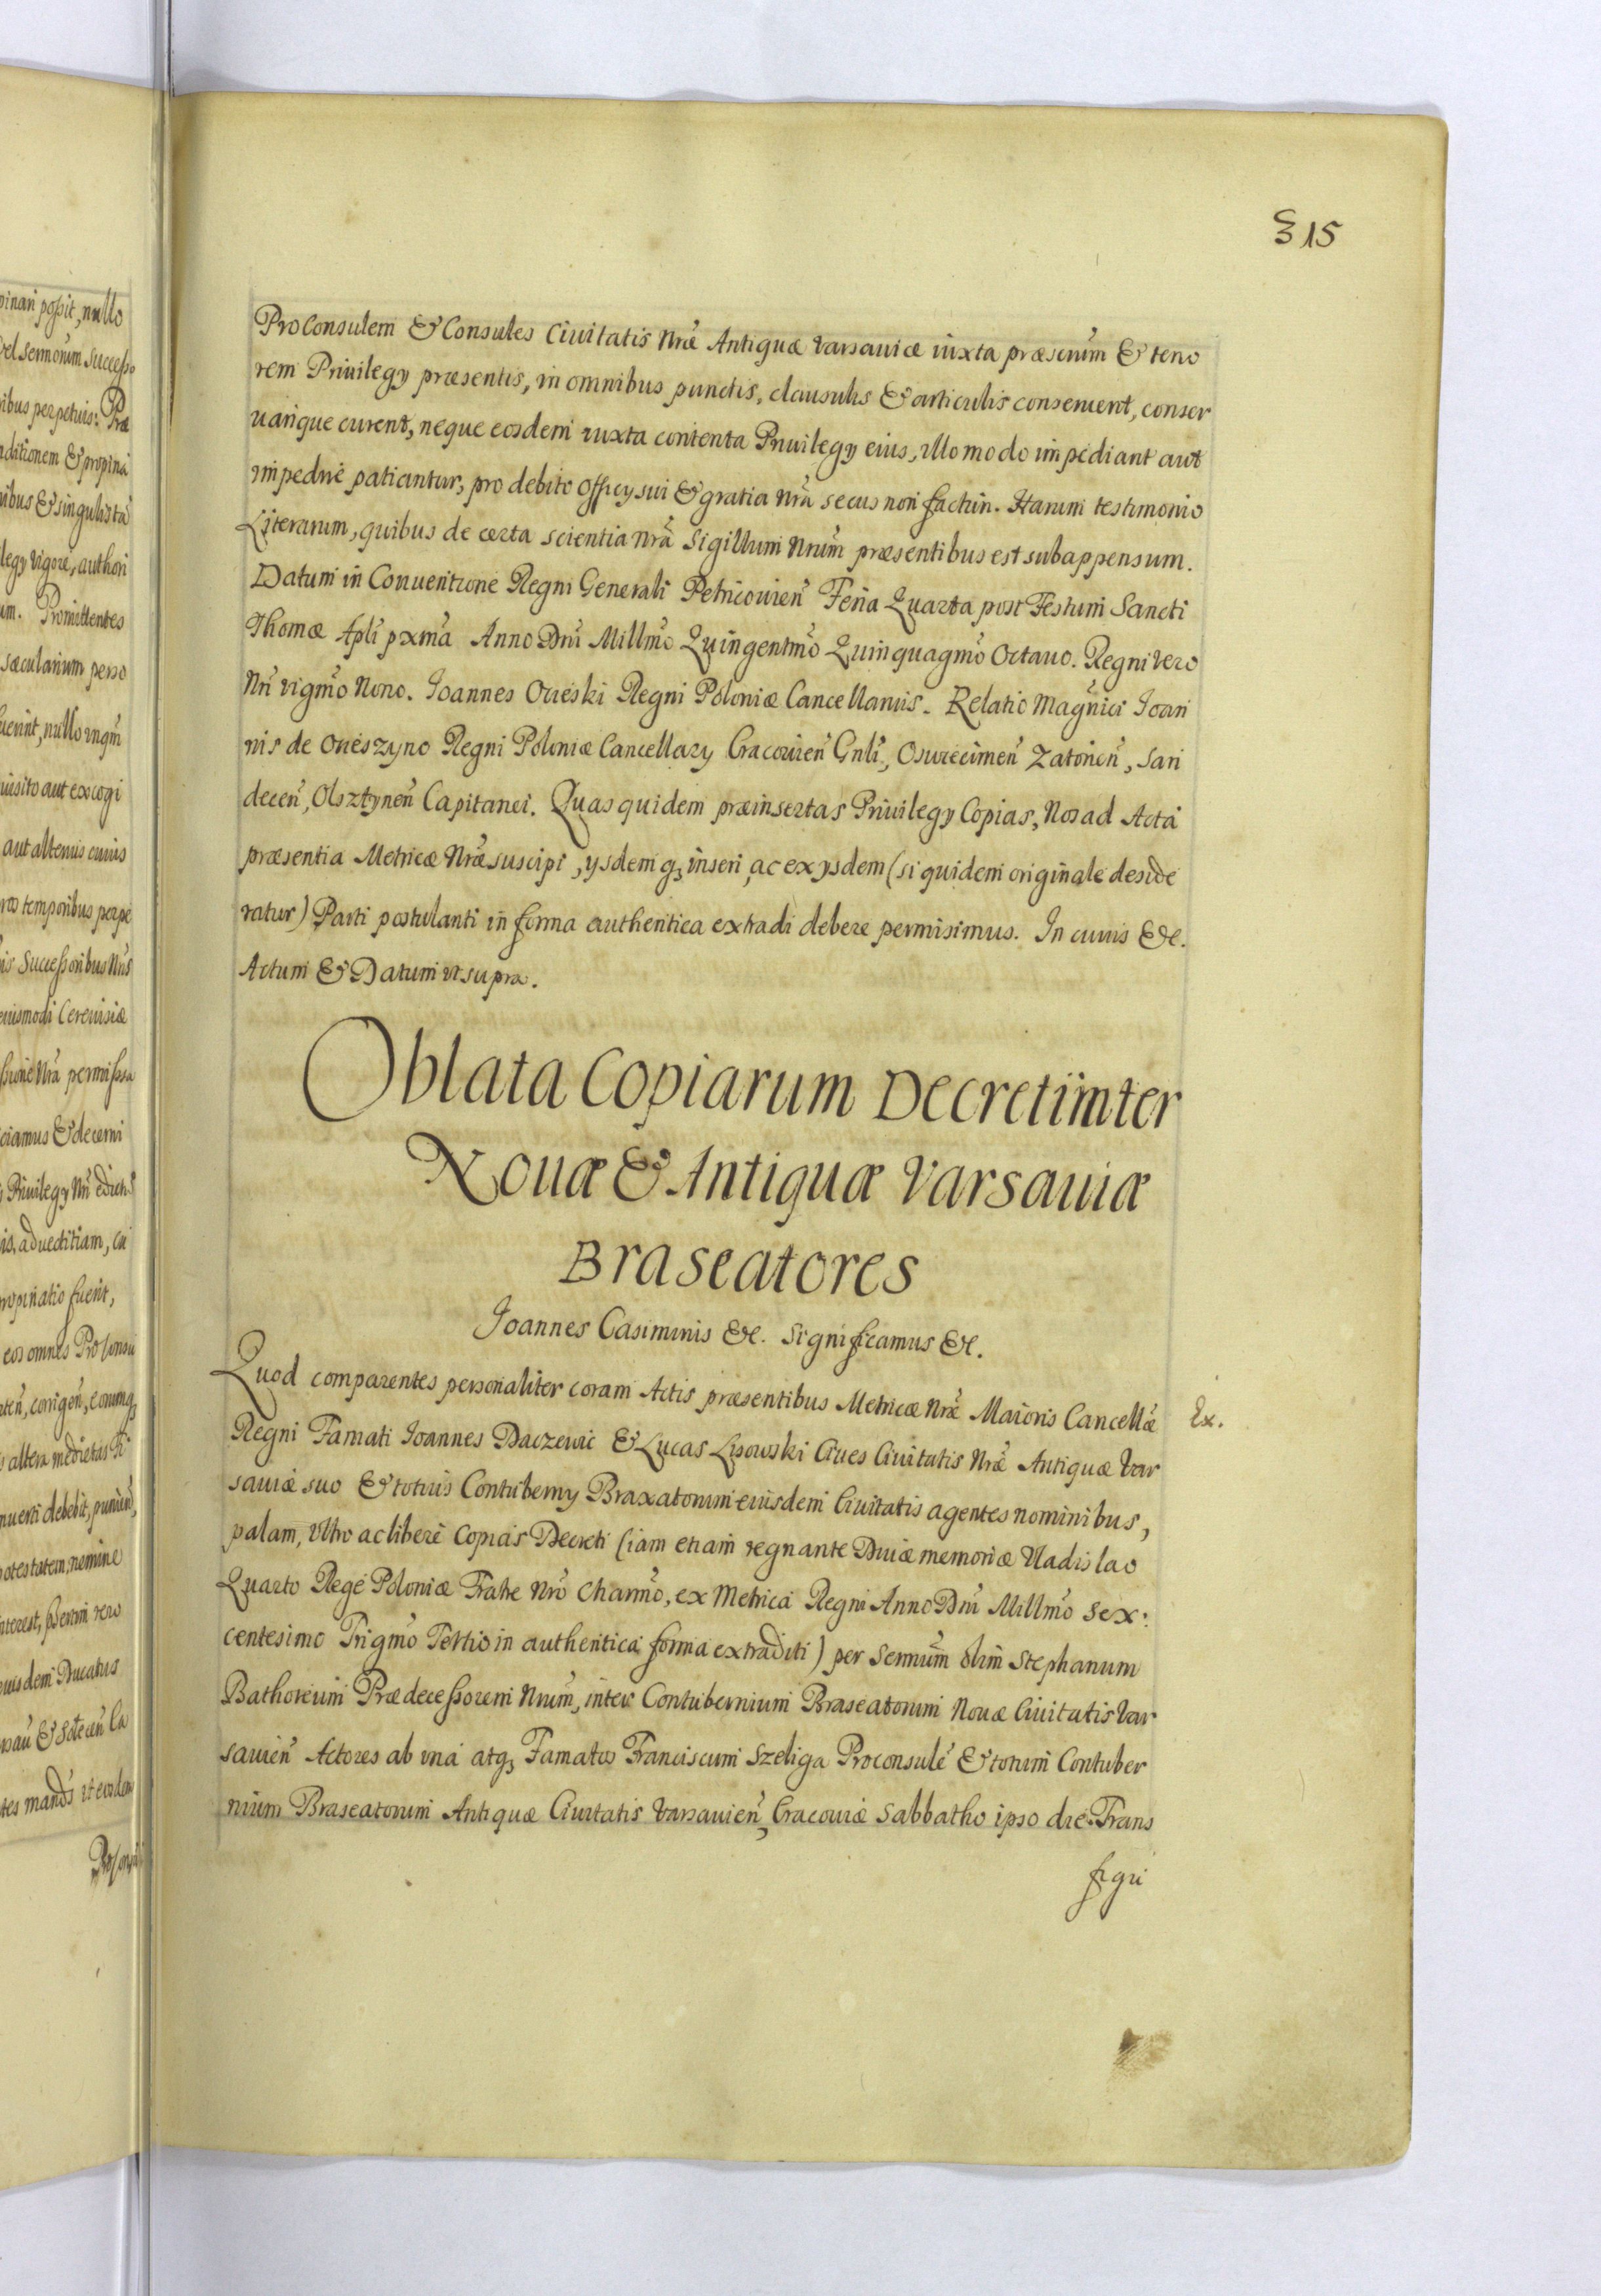 315
ProConsulem & Consules Ciuitatis Nrae Antiquae Varsauiae iuxta praescriptum & teno
rem Priuilegy praesentis, in omnibus punctis, clausulis & articulis conseruent, conser
uarique curent, neque eosdem iuxta contenta Priuilegy eius, ullo modo impediant aut
impedirè patiantur, pro debito officy sui & gratia Nrã secus non facturi. Harum testimonio
Literarum, quibus de certa scientia Nrã Sigillum Nrum praesentibus est subappensum.
Datum in Conuentione Regni Generali Petricouien Feria Quarta post Festum Sancti
Thomae Apli pxma Anno Dni Millmo Quingentmo Quinquagmo Octauo. Regni vero
Nri vigmo Nono. Ioannes Ocieski Regni Poloniae Cancellarius. Relatio Magnifici Ioan
nis de Ocieszyno Regni Poloniae Cancellary Cracouien Gnlis, Osuiecimen Zatorien, San
decen, Olsztynen Capitanei. Quas quidem praeinsertas Priuilegy Copias, Nos ad Acta
praesentia Metricae Nrae suscipi, ysdemq, inseri, ac ex ysdem (si quidem originale deside
ratur) Parti postulanti in forma authentica extradi debere permisimus. In cuius &c.
Actum & Datum vt supra.
Oblata Copiarum Decreti inter
Nouae & Antiquae Varsauiae
Braseatores
Ioannes Casimirus &c. Significamus &c.
Quod comparentes personaliter coram Actis praesentibus Metricae Nrae Maioris Cancellae
Ex.
Regni Famati Ioannes Daczewic & Lucas Lisowski Ciues Ciuitatis Nrae Antiquae Var
sauiae suo & totius Contuberny Braxatorum eiusdem Ciuitatis agentes nominibus,
palam, vltro ac liberè Copias Decreti (iam etiam regnante Diuae memoriae Vladislao
Quarto Rege Poloniae Fratre Nro Charmo, ex Metrica Regni Anno Dni Millmo Sex:
centesimo Trigmo Tertio in authentica forma extraditi) per Sermum olim Stephanum
Bathoreum Praedecessorem Nrum, inter Contubernium Braseatorum Nouae Ciuitatis Var
sauien Actores ab vna atq, Famatos Franciscum Szeliga Proconsulè & totum Contuber
nium Braseatorum Antiquae Ciuitatis Varsauien, Cracouiae Sabbatho ipso die Trans
figu